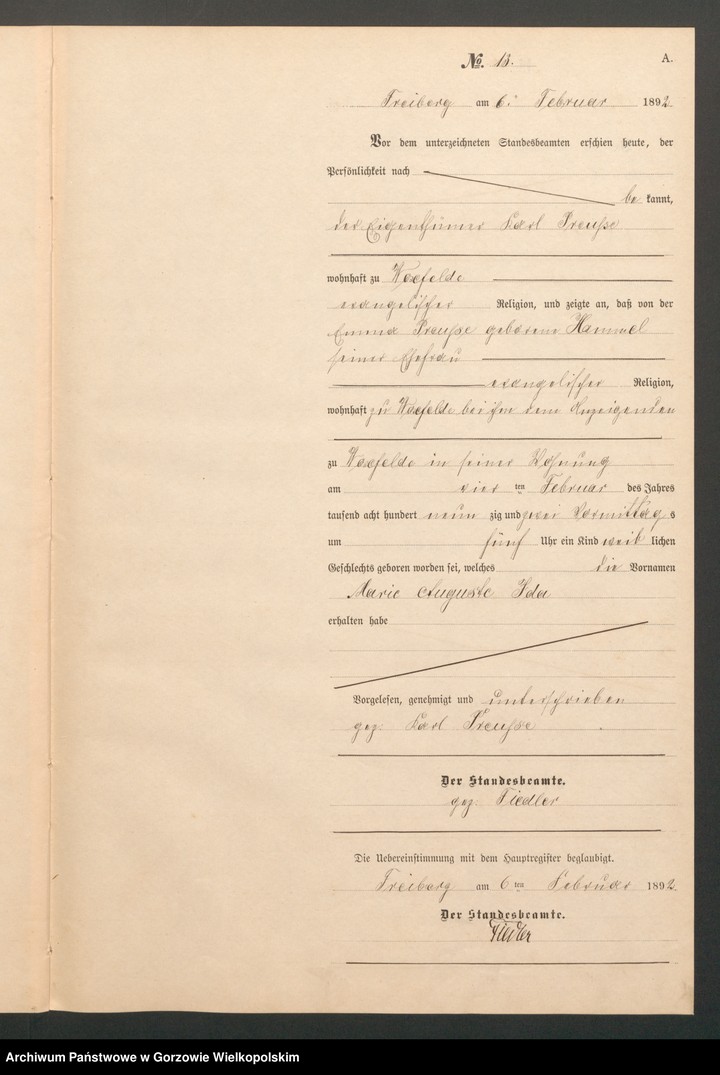 No. 13. A.
Freiberg am 6. Februar 1892.
Vor dem unterzeichneten Standesbeamten erschien heute, der
Persönlichkeit nach
be kannt,
der Eigenthümer Karl Preuße
wohnhaft zu Woxfelde
evangelischer Religion, und zeigte an, daß von der
Emma Preuße geborene Hammel
seiner Ehefrau
evangelischer Religion,
wohnhaft zu Woxfelde bei ihm dem Anzeigenden
zu Woxfelde in seiner Wohnung
am vier ten Februar des Jahres
tausend acht hundert neun zig und zwei Vormittag s
um fünf Uhr ein Kind weib lichen
Geschlechts geboren worden sei, welches die Vornamen
Marie Auguste Ida
erhalten habe
Vorgelesen, genehmigt und unterschrieben
gez. Karl Preuße
Der Standesbeamte.
gez. Fiedler
Die Uebereinstimmung mit dem Hauptregister beglaubigt.
Freiberg am 6 ten Februar 1892.
Der Standesbeamte.
Fiedler
Archiwum Państwowe w Gorzowie Wielkopolskim